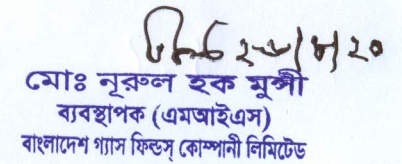 মোঃ নূরুল হক মুন্সী
ব্যবস্থাপক (এমআইএস)
বাংলাদেশ গ্যাস ফিল্ডস্ কোম্পানী লিমিটেড